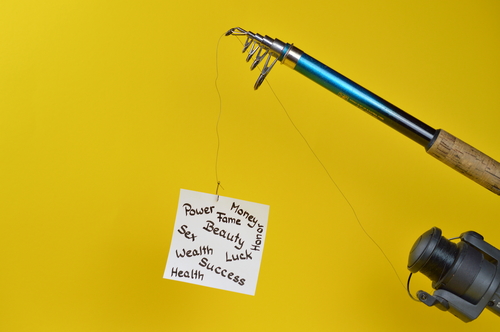 Power Money
Fame
Honor
Sex Beauty
Wealth Luck
Success
Health